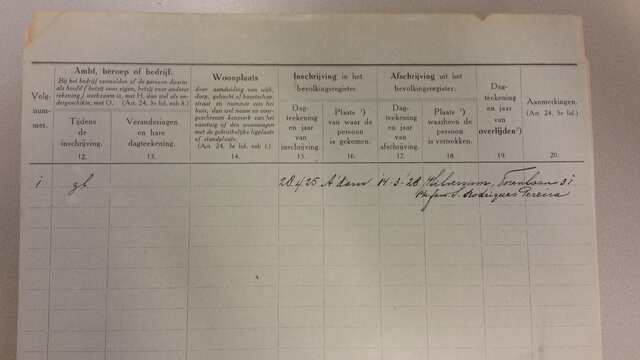 Volg-
num-
mer.
Ambt, beroep of bedrijf.
Bij het bedrijf vermelden of de persoon daarin
als hoofd (hetzij voor eigen, hetzij voor andere
rekening) werkzaam is, met H, dan wel als on-
dergeschikte, met O. (Art. 24, 3e lid, sub h.)
Tijdens
de
inschrijving.
12.
Veranderingen
en hare
dagteekening.
13.
Woonplaats
door aanduiding van wijk,
dorp, gehucht of buurtschap,
straat en nummer van het
huis, dan wel naam en voor-
geschreven kenmerk van het
vaartuig of den woonwagen
met de gebruikelijke ligplaats
of standplaats.
(Art. 24, 3e lid, sub i.)
14.
Inschrijving in het
bevolkingsregister.
Dag-
teekening
en jaar
van
inschrijving.
15.
Plaats ¹)
van waar de
persoon
is gekomen.
16.
Afschrijving uit het
bevolkingsregister.
Dag-
teekening
en jaar
van
afschrijving.
17.
Plaats ¹)
waarheen de
persoon
is vertrokken.
18.
Dag-
teekening
en jaar
van
overlijden²)
19.
Aanmerkingen.
(Art. 24, 3e lid.)
20.
1 28 4 25 A'dam 14-3-'28 Hilversum, Torenlaan 31
S. Rodrigues Pereira